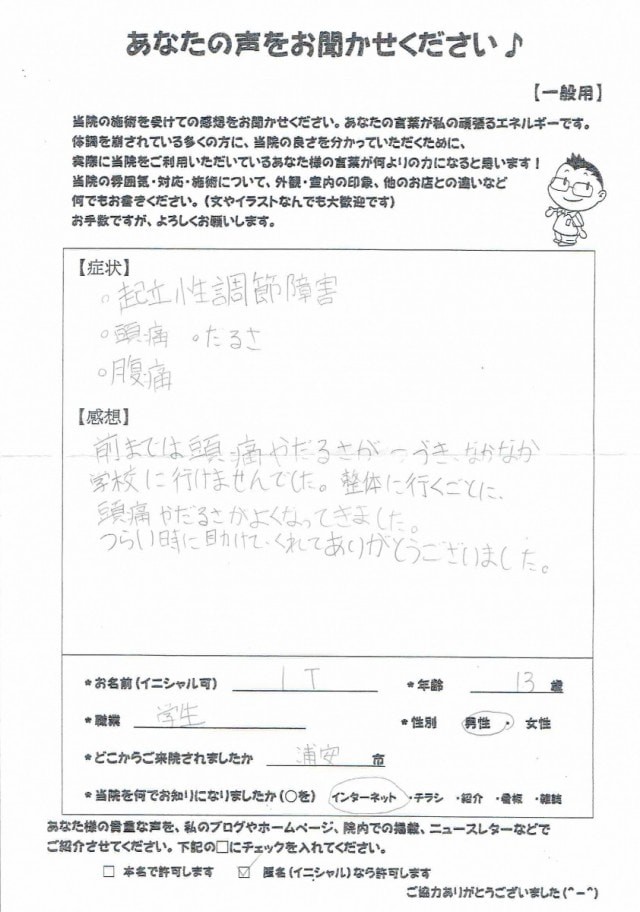 あなたの声をお聞かせください♪
【一般用】
当院の施術を受けての感想をお聞かせください。あなたの言葉が私の頑張るエネルギーです。
体調を崩されている多くの方に、当院の良さを分かっていただくために、
実際に当院をご利用いただいているあなた様の言葉が何よりの力になると思います！
当院の雰囲気・対応・施術について、外観・室内の印象、他のお店との違いなど
何でもお書きください。（文やイラストなんでも大歓迎です）
お手数ですが、よろしくお願いします。
【症状】
。起立性調節障害
。頭痛 。たるさ
。腹痛
【感想】
前までは頭痛やだるさがつづき、なかなか
学校に行けませんでした。整体に行くごとに、
頭痛やだるさがよくなってきました。
つらい時に助けてくれてありがとうございました。
*お名前（イニシャル可） I T *年齢 13 歳
*職業 学生 *性別 男性 ・ 女性
*どこからご来院されましたか 浦安 市
*当院を何でお知りになりましたか（○を） インターネット ・チラシ ・紹介 ・看板 ・雑誌
あなた様の貴重な声を、私のブログやホームページ、院内での掲載、ニュースレターなどで
ご紹介させてください。下記の□にチェックを入れてください。
□ 本名で許可します ☑ 匿名（イニシャル）なら許可します
ご協力ありがとうございました(^-^)